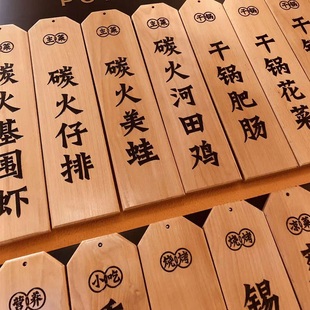 主菜
碳火基围虾
主菜
碳火仔排
主菜
碳火美蛙
主菜
碳火河田鸡
干锅
干锅肥肠
干锅
干锅花菜
营养
小吃
烧烤
烧烤
锡
凉菜